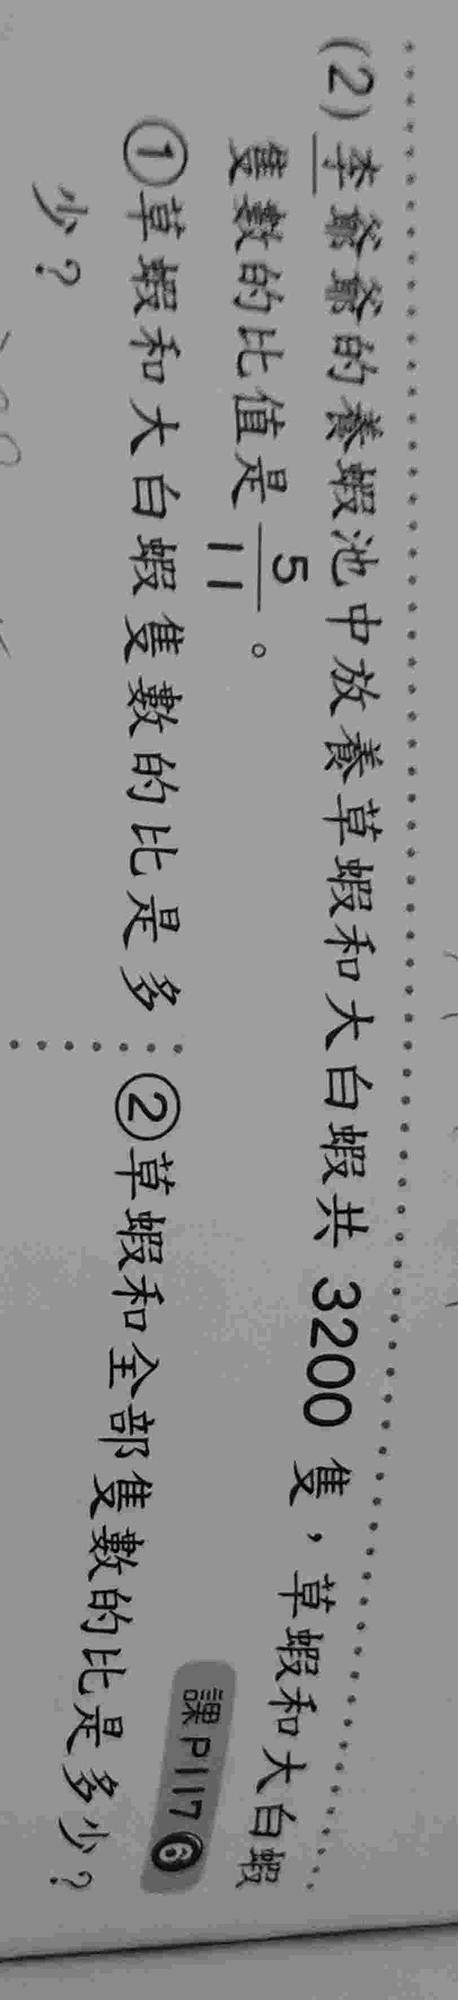 (2)李爺爺的養蝦池中放養草蝦和大白蝦共 3200 隻，草蝦和大白蝦
隻數的比值是 5/11。
課 P117 ⑥
①草蝦和大白蝦隻數的比是多
少？
②草蝦和全部隻數的比是多少？